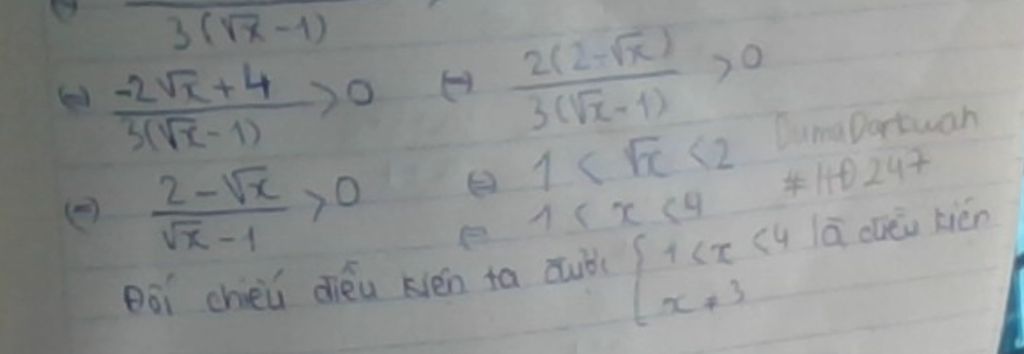 3(√x - 1)
(=) -2√x + 4 / 3(√x - 1) > 0 (=) 2(2 - √x) / 3(√x - 1) > 0
(=) 2 - √x / √x - 1 > 0 (=) 1 < √x < 2
DumaDartwah
#HĐ247
(=) 1 < x < 4
Đối chiếu điều kiện ta được { 1 < x < 4 là điều kiện
x ≠ 3